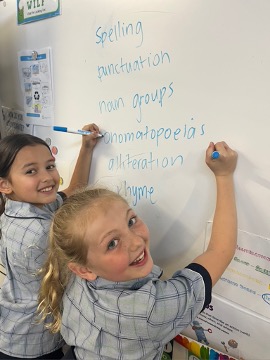 WILF
Spelling
punctuation
noun groups
onomatopoeias
alliteration
rhyme